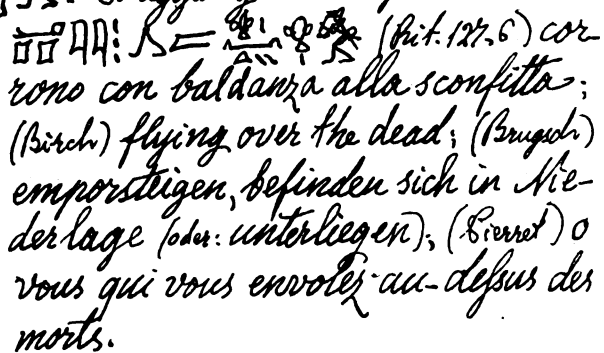 (Rit. 127,6) cor-
rono con baldanza alla sconfitta;
(Birch) flying over the dead; (Brugsch)
emporsteigen, befinden sich in Nie-
derlage (oder: unterliegen); (Pierret) o
vous qui vous envolez au-dessus des
morts.